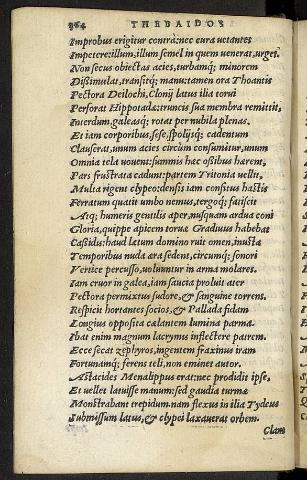 364 THEBAIDOS
Improbus erigitur contrà: nec cura vetantes
Impetere: illum, illum semel in quem venerat, urget.
Non secus obiectas acies, turbamq; minorem
Dissimulat, transitq;: manu: tamen ora Thoantis
Pectora Deilochi, Clonij latus ilia torui
Perforat Hippotadæ: truncis sua membra remittit,
Interdum galeasq; rotat per nubila plenas.
Et iam corporibus, sese, spolijsq; cadentum
Clauserat, unum acies circùm consumitur, unum
Omnia tela vouent: summis hæc ossibus hærent,
Pars frustrata cadunt: partem Tritonia uellit,
Multa rigent clypeo: densis iam consitus hastis
Ferratum quatit umbo nemus, tergoq; fatiscit
Atq; humeris gentilis aper, nusquam ardua coni
Gloria, quippe apicem toruæ Gradiuus habebat
Cassidis: haud lætum domino ruit omen, inusta
Temporibus nuda æra sedent, circumq; sonori
Vertice percusso, uoluuntur in arma molares.
Iam cruor in galea, iam saucta proluit ater
Pectora permixtus sudore, & sanguine torrens.
Respicit hortantes socios, & Pallada fidam
Longius opposita calantem lumina parma.
Ibat enim magnum lacrymis inflectere patrem.
Ecce secat zephyros, ingentem fraxinus iram
Fortunamq; ferens teli, non eminet autor.
Astacides Menalippus erat: nec prodidit ipse,
Et uellet latuisse manum: sed gaudia turmæ
Monstrabant trepidum. nam flexus in ilia Tydeus
Submissum latus, & clypei laxauerat orbem.
Clam